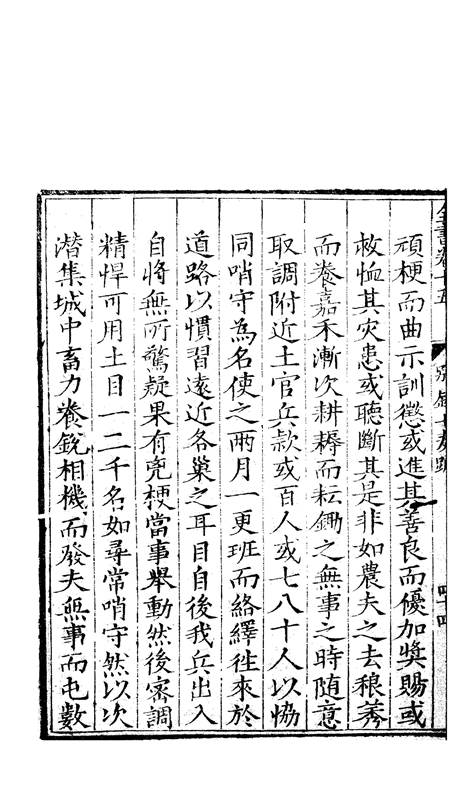 全書卷十五 別錄七奏疏 四十四
頑梗而曲示訓懲或進其善良而優加奬賜或
救恤其灾患或聽斷其是非如農夫之去稂莠
而養嘉禾漸次耕耨而耘鋤之無事之時随意
取調附近土官兵款或百人或七八十人以協
同哨守為名使之兩月一更班而絡繹徃來於
道路以慣習遠近各巢之耳目自後我兵出入
自將無所驚疑果有兇梗當事舉動然後宻調
精悍可用土目一二千名如尋常哨守然以次
潜集城中畜力養銳相機而發夫無事而屯數